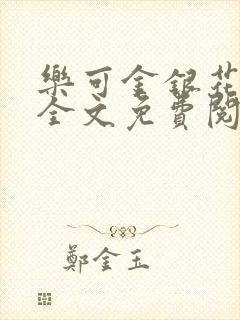 樂可金銀花
全文免費閱
鄭金玉